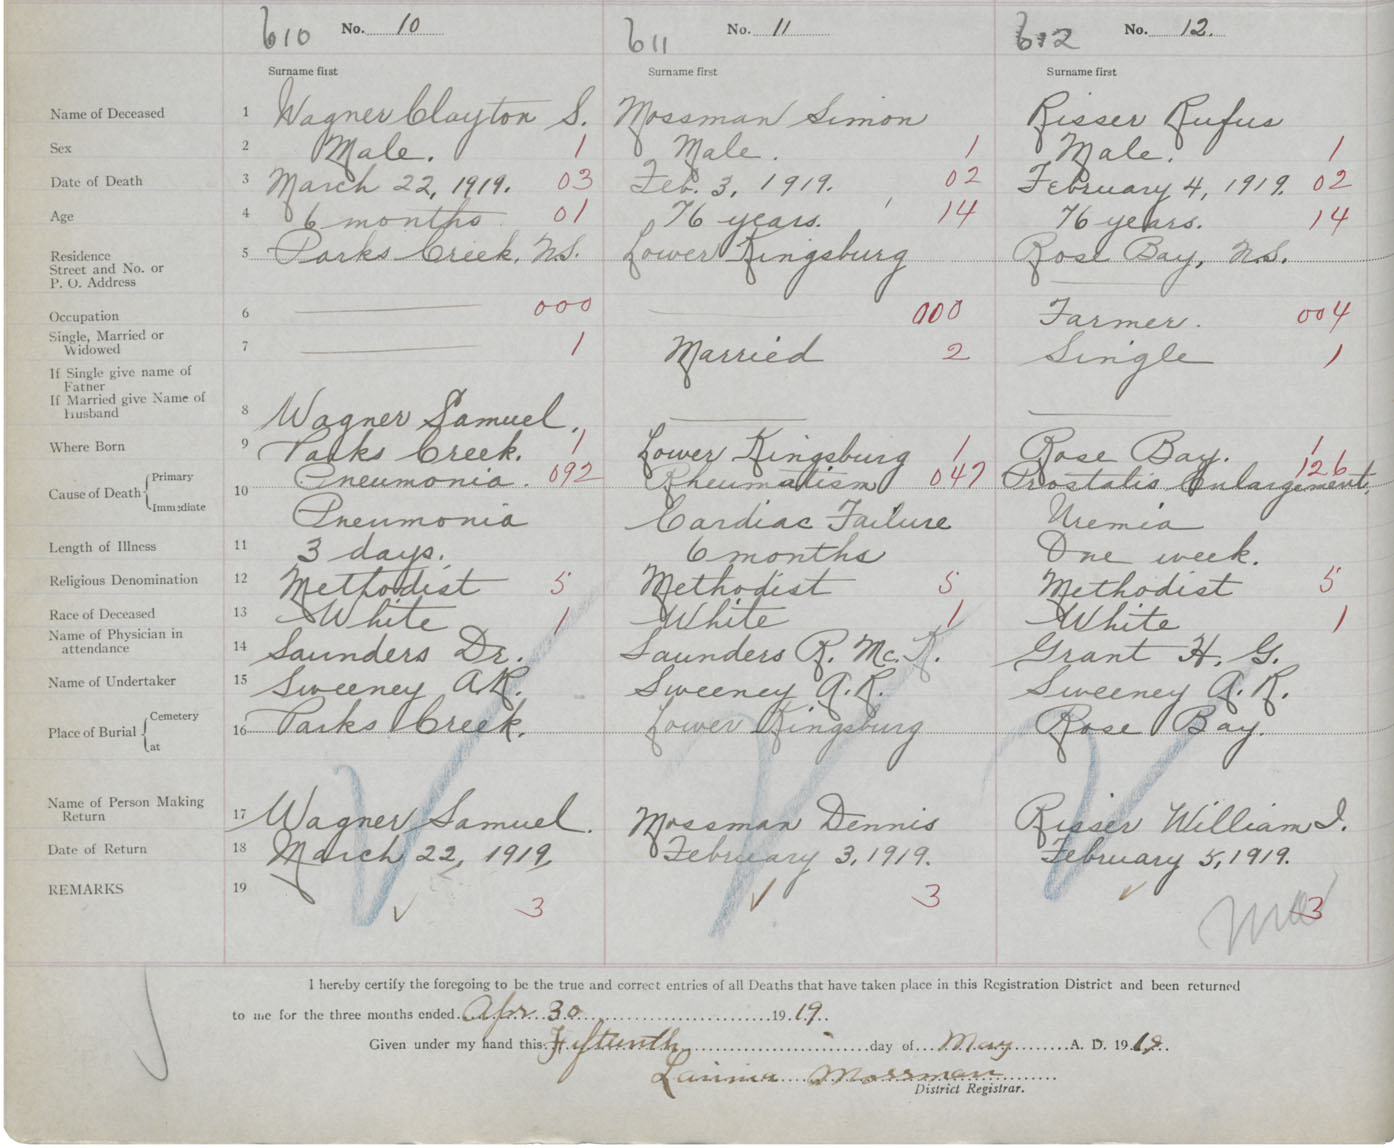 610 No. 10 611 No. 11 612 No. 12.
Surname first Surname first Surname first
Name of Deceased 1 Wagner Clayton S. Mossman Simon Risser Rufus
Sex 2 Male. 1 Male. 1 Male. 1
Date of Death 3 March 22, 1919. 03 Feb. 3, 1919. 02 February 4, 1919. 02
Age 4 6 months 01 76 years. 14 76 years. 14
Residence
Street and No. or
P. O. Address
5 Parks Creek, N.S. Lower Kingsburg Rose Bay, N.S.
Occupation 6 000 000 Farmer. 004
Single, Married or
Widowed
7 1 Married 2 Single 1
If Single give name of
Father
If Married give Name of
Husband
8 Wagner Samuel.
Where Born 9 Parks Creek. 1 Lower Kingsburg 1 Rose Bay. 1
Cause of Death Primary 10 Pneumonia. 092 Rheumatism 047 Prostatis Enlargement, 126
Immediate Pneumonia Cardiac Failure Uremia
Length of Illness 11 3 days. 6 months One week.
Religious Denomination 12 Methodist 5 Methodist 5 Methodist 5
Race of Deceased 13 White 1 White 1 White 1
Name of Physician in
attendance
14 Saunders Dr. Saunders R. Mc. K. Grant H. G.
Name of Undertaker 15 Sweeney A.R. Sweeney A.R. Sweeney A.R.
Place of Burial Cemetery at 16 Parks Creek. Lower Kingsburg Rose Bay.
Name of Person Making
Return
17 Wagner Samuel. Mossman Dennis Risser William I.
Date of Return 18 March 22, 1919. February 3, 1919. February 5, 1919.
REMARKS 19 3 3 3
I hereby certify the foregoing to be the true and correct entries of all Deaths that have taken place in this Registration District and been returned
to me for the three months ended Apr 30 1919.
Given under my hand this Fifteenth day of May A. D. 1919.
Mossman
District Registrar.